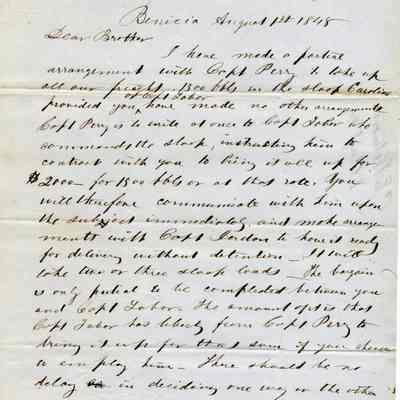 Benicia August 1st 1848
Dear Brother
I have made a partial
arrangement with Capt Perry to take up
all our freight 1500 bbls in the sloop Caroline
or Capt Tabor
provided you have made no other arrangements
Capt Perry is to write at once to Capt Tabor who
commands the sloop, instructing him to
contract with you to bring it all up for
$2000 - for 1500 bbls or at that rate. You
will therefore communicate with him upon
the subject immediately and make arrange-
ments with Capt to have it ready
for delivery without detention - It will
take two or three sloop loads - The bargain
is only partial to be completed between you
and Capt Tabor. The amount of it is that
Capt Tabor has liberty from Capt Perry to
bring it up for that sum if you choose
to employ him - There should be no
delay in deciding one way or the other